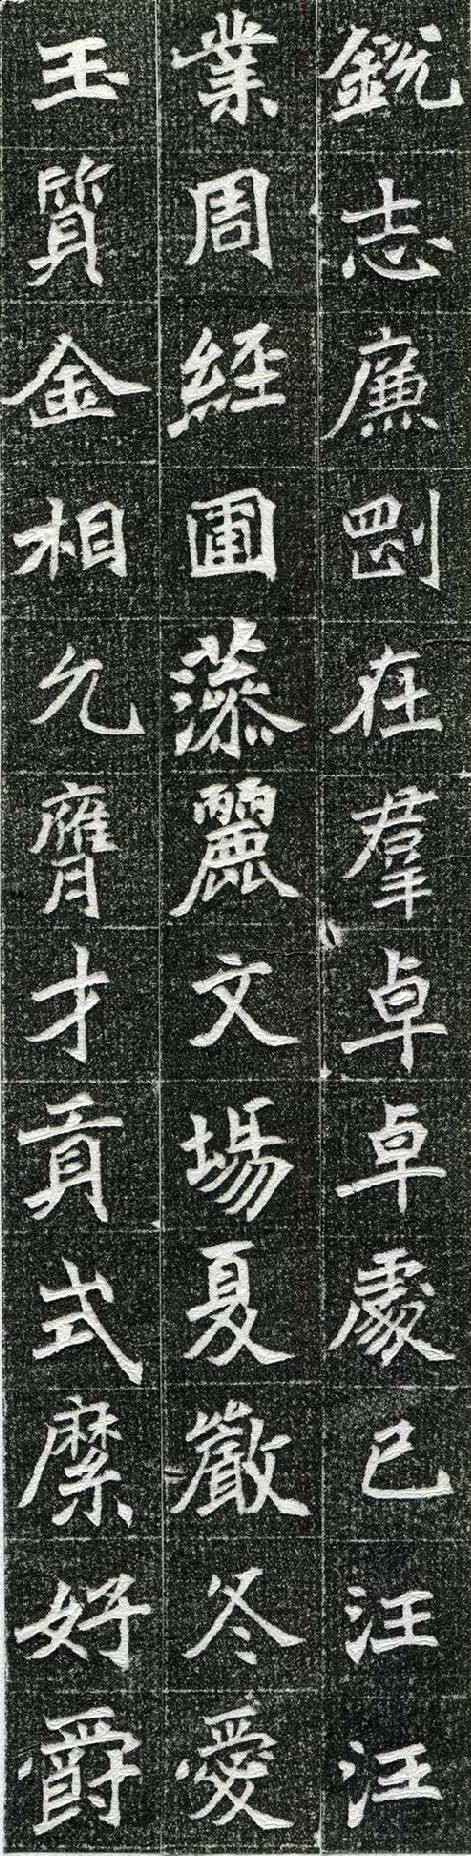 銳志廉剛在羣卓卓處己汪汪
業周經圃藻麗文場夏嚴冬愛
玉質金相允膺才貢式縻好爵